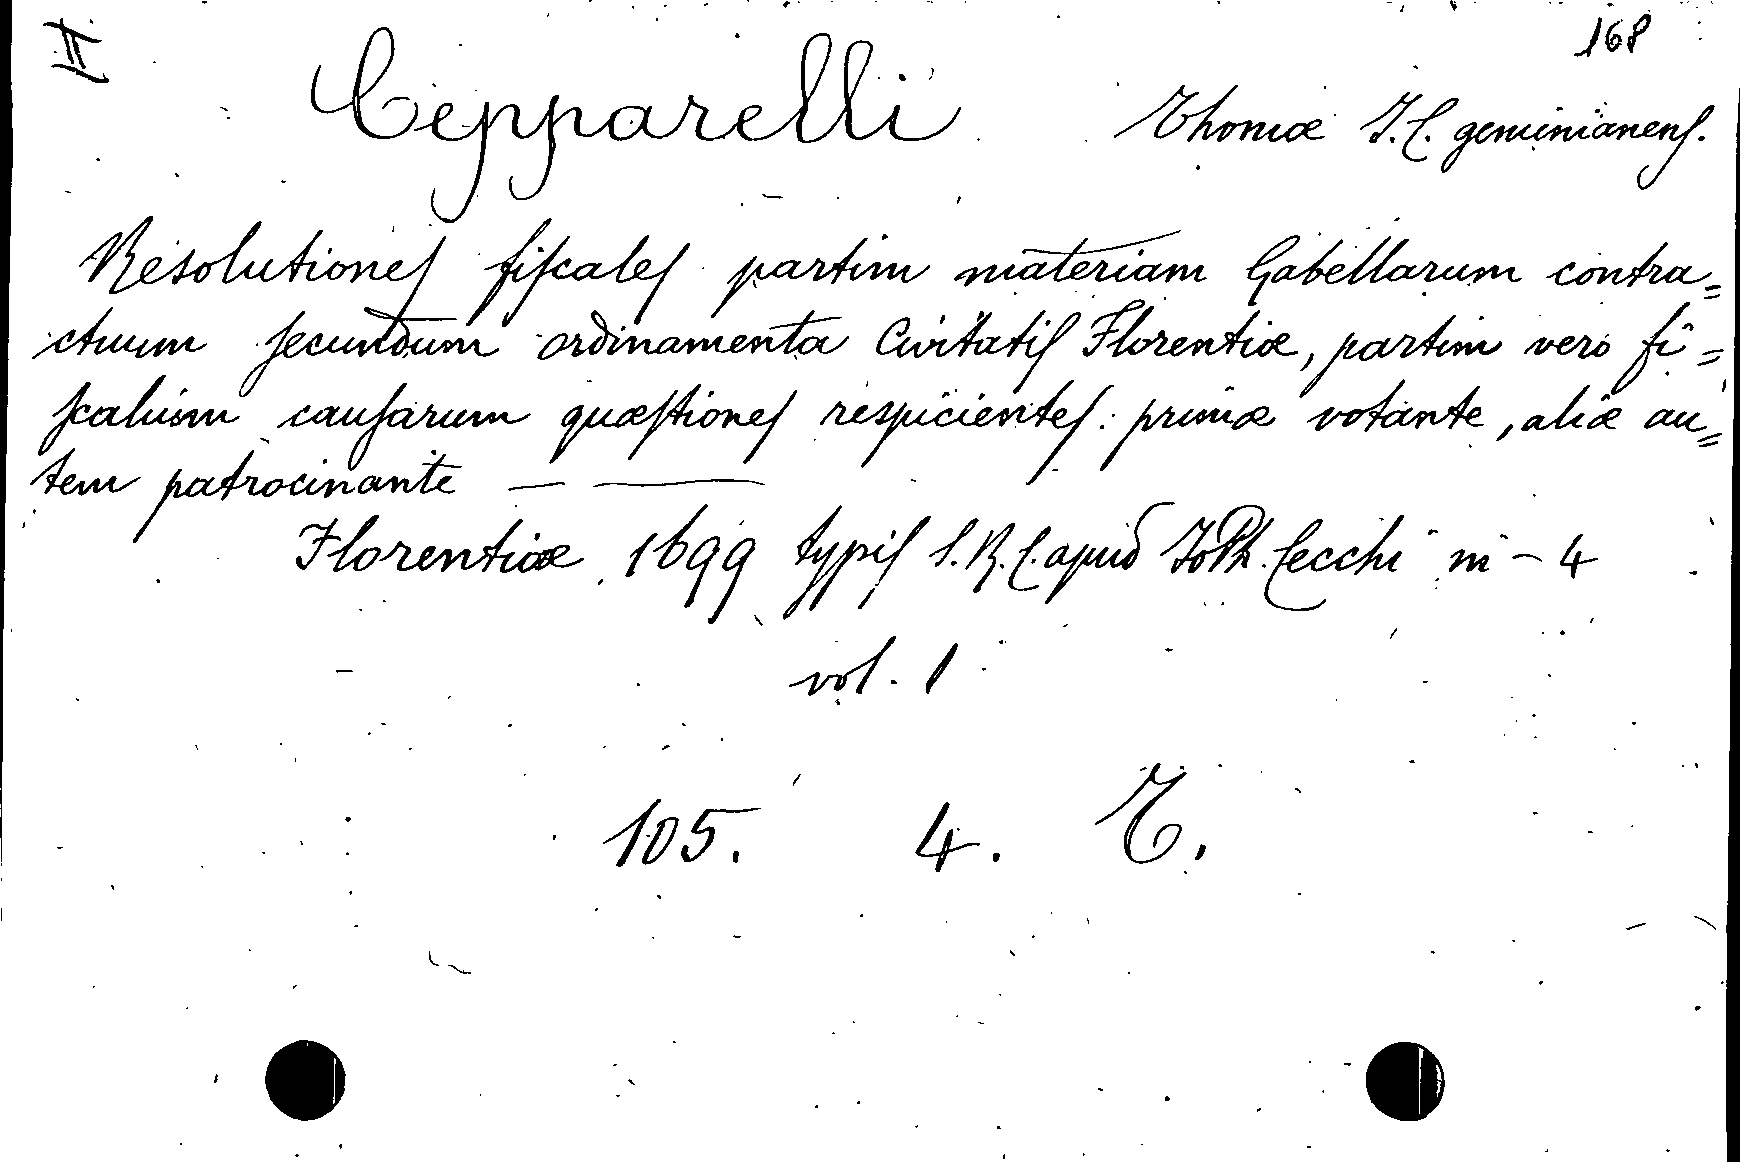 II
168
Cepparelli Thomæ J. C. geminianens.
Resolutiones fiscales partim materiam Gabellarum contra=
ctuum secundum ordinamenta Civitatis Florentiæ, partim vero fi=
scalium causarum quæstiones respicientes: primæ votante, aliæ au=
tem patrocinante — —
Florentiæ 1699 typis S. R. C. apud JoPh. Cecchi in - 4
vol. 1
105. 4. T.